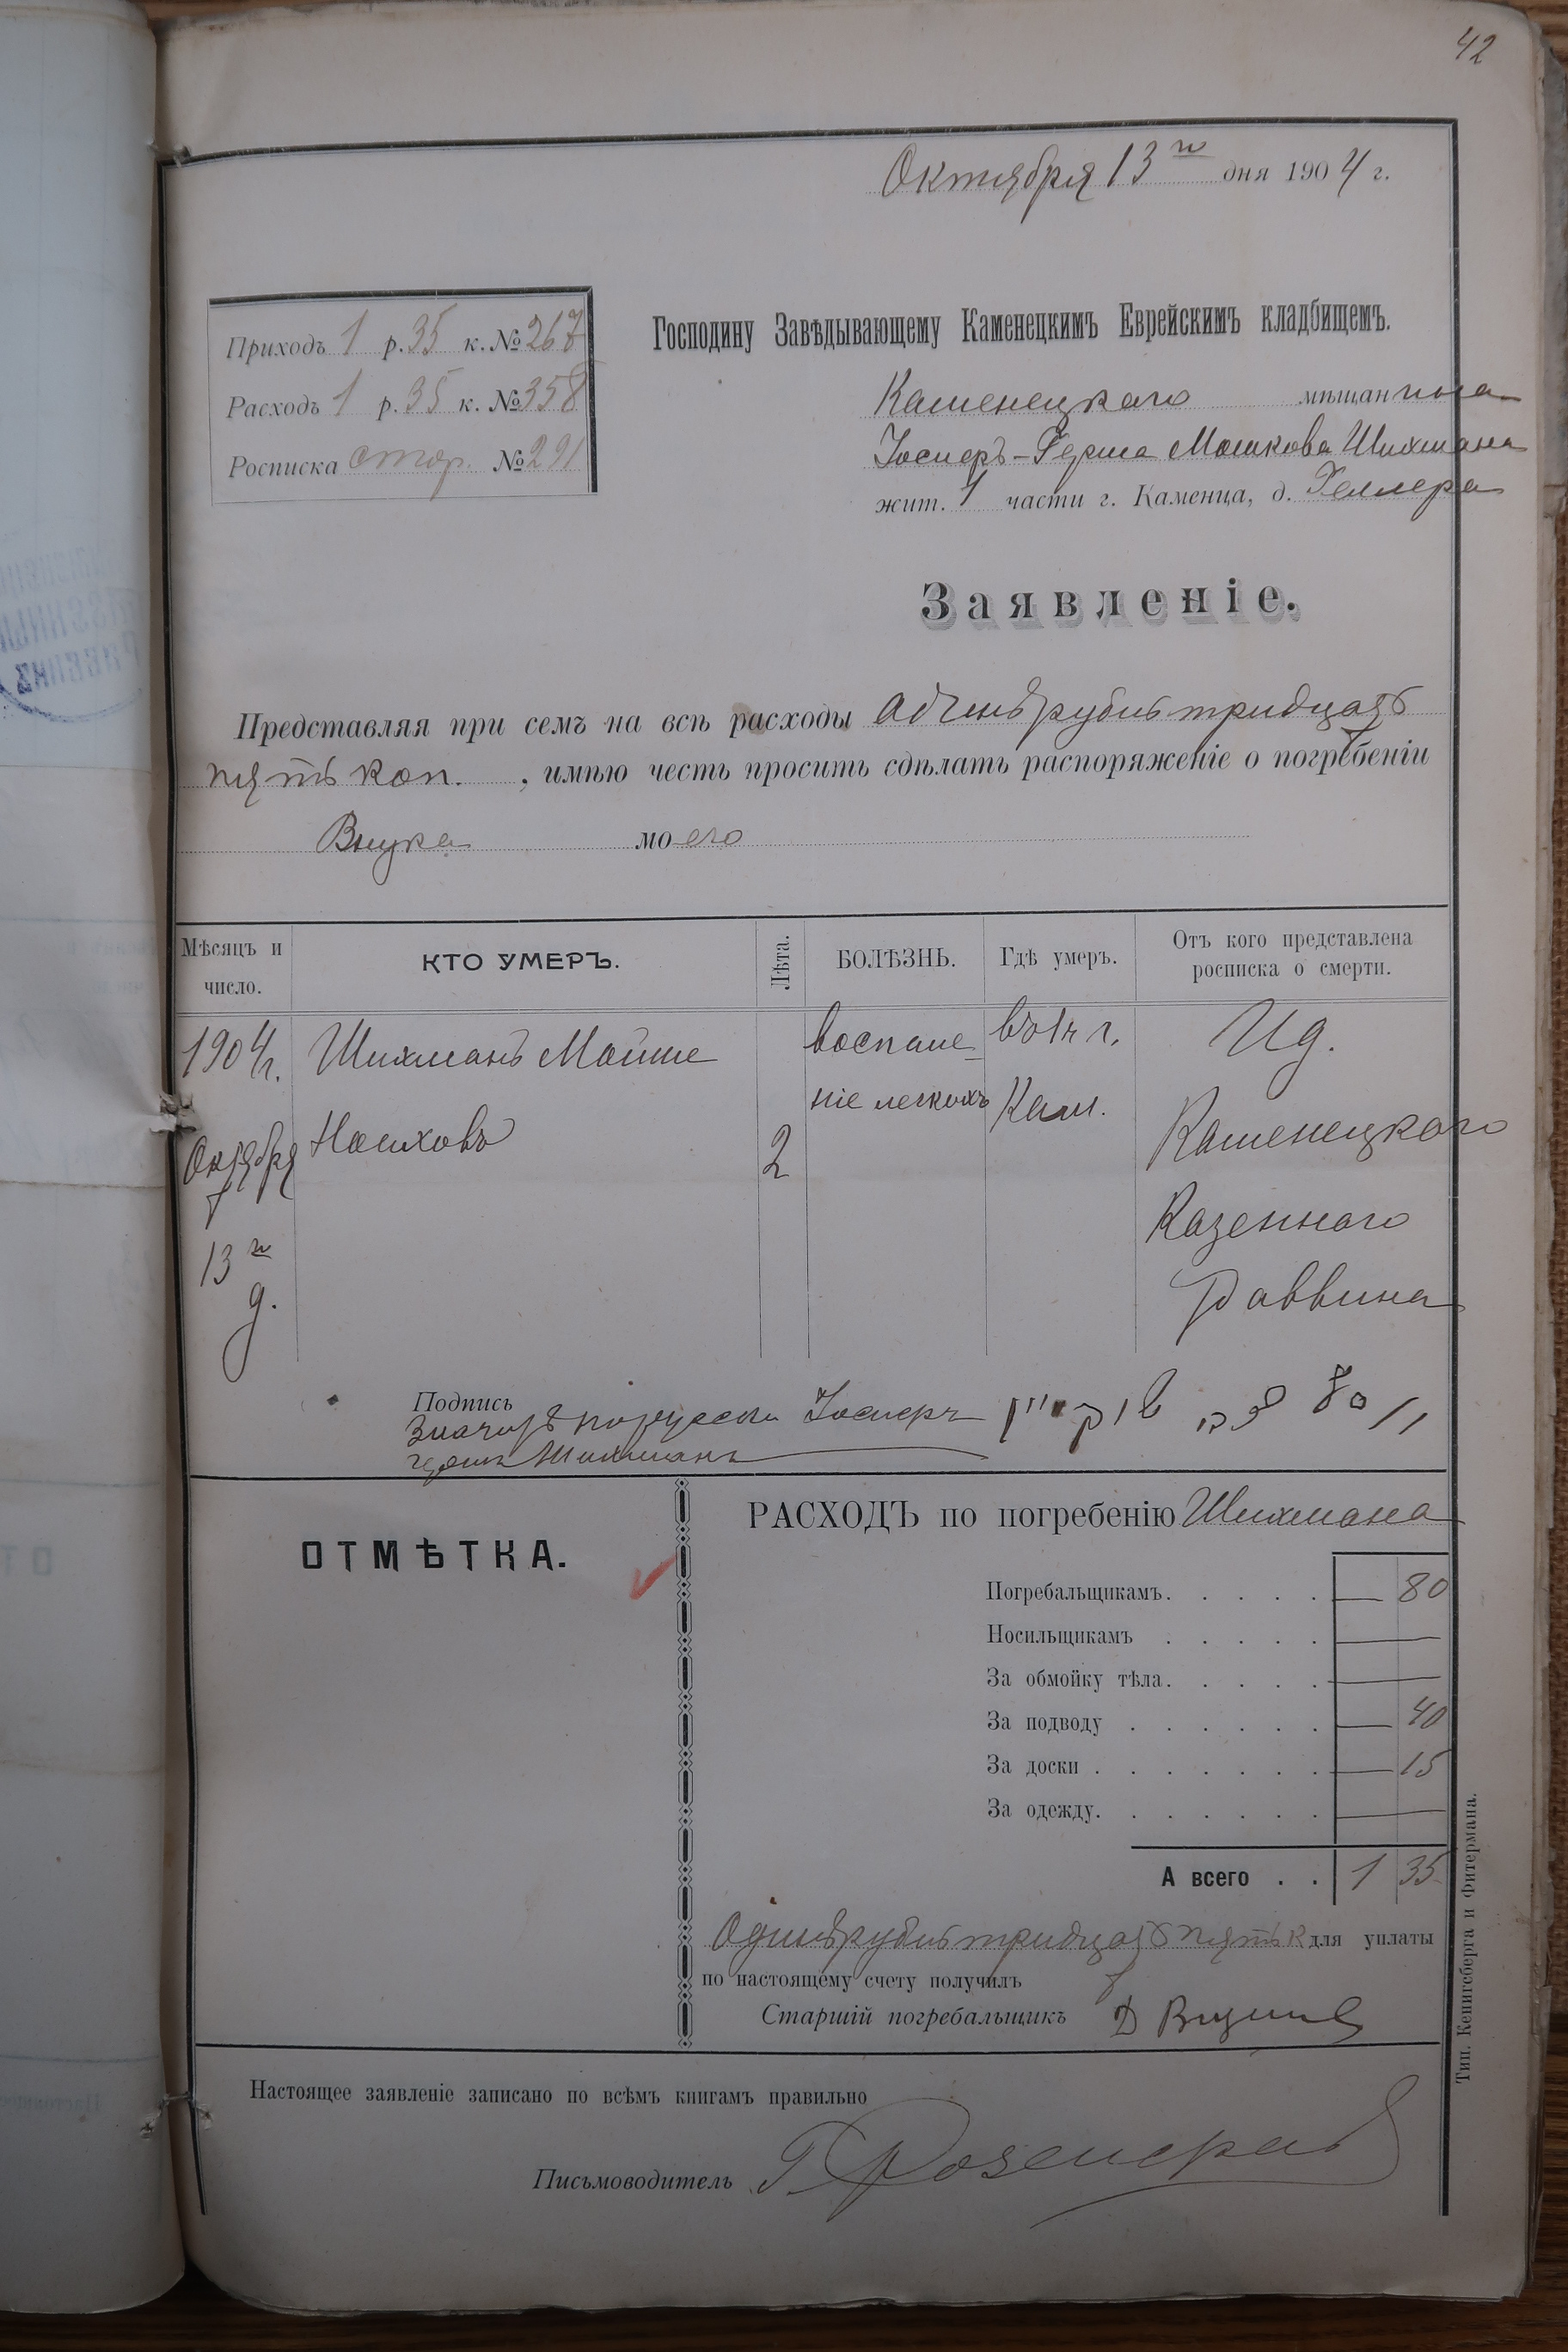 42
Октября 13го дня 1904 г.
Приходъ 1 р. 35 к. № 267
Расходъ 1 р. 35 к. № 358
Росписка стор. № 291
Господину Завѣдывающему Каменецкимъ Еврейскимъ кладбищемъ.
Каменецкаго мѣщанина
Іосифъ-Герша Мошкова Шихмана
жит. 1 части г. Каменца, д. Геллера
Заявленіе.
Представляя при семъ на всѣ расходы одинъ рубль тридцать
пять коп. , имѣю честь просить сдѣлать распоряженіе о погребеніи
Внука моего
Мѣсяцъ и число. КТО УМЕРЪ. Лѣта. БОЛѢЗНЬ. Гдѣ умеръ. Отъ кого представлена росписка о смерти.
1904 г. Шихманъ Мойше воспале- въ 1 ч г. Ид.
ніе легкихъ Кам.
Октября 2 Каменецкаго
13го д. Казеннаго
Раввина
Подпись
Іосифъ
Шихманъ
ОТМѢТКА.
РАСХОДЪ по погребенію Шихмана
Погребальщикамъ. . . . . — 80
Носильщикамъ . . . . . —
За обмойку тѣла. . . . . —
За подводу . . . . . . — 40
За доски . . . . . . . — 15
За одежду. . . . . . . —
А всего . . 1 35
Одинъ рубль тридцать пять к для уплаты
по настоящему счету получилъ
Старшій погребальщикъ Д
Настоящее заявленіе записано по всѣмъ книгамъ правильно
Письмоводитель
Тип. Кенигсберга и Фитермана.